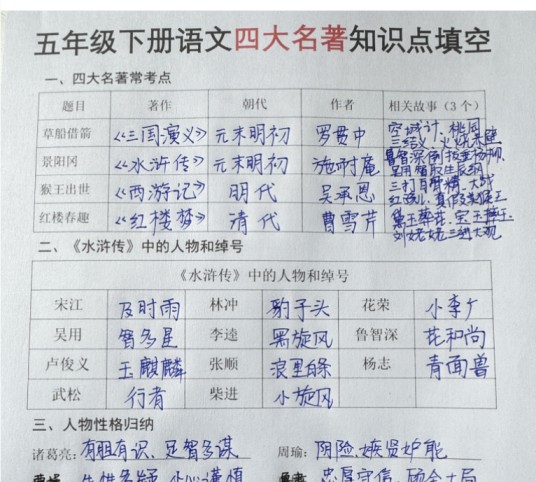 五年级下册语文四大名著知识点填空
一、四大名著常考点
题目 著作 朝代 作者 相关故事(3个)
草船借箭 《三国演义》 元末明初 罗贯中 空城计、桃园
三结义、火烧赤壁
景阳冈 《水浒传》 元末明初 施耐庵 鲁智深倒拔垂杨柳、
吴用智取生辰纲
猴王出世 《西游记》 明代 吴承恩 三打白骨精、大战
红孩儿、真假美猴王
红楼春趣 《红楼梦》 清代 曹雪芹 黛玉葬花、宝玉
刘姥姥三进大观
二、《水浒传》中的人物和绰号
《水浒传》中的人物和绰号
宋江 及时雨 林冲 豹子头 花荣 小李广
吴用 智多星 李逵 黑旋风 鲁智深 花和尚
卢俊义 玉麒麟 张顺 浪里白条 杨志 青面兽
武松 行者 柴进 小旋风
三、人物性格归纳
诸葛亮:有胆有识、足智多谋 周瑜:阴险、嫉贤妒能
生性多疑、小心谨慎 忠厚守信、顾全大局